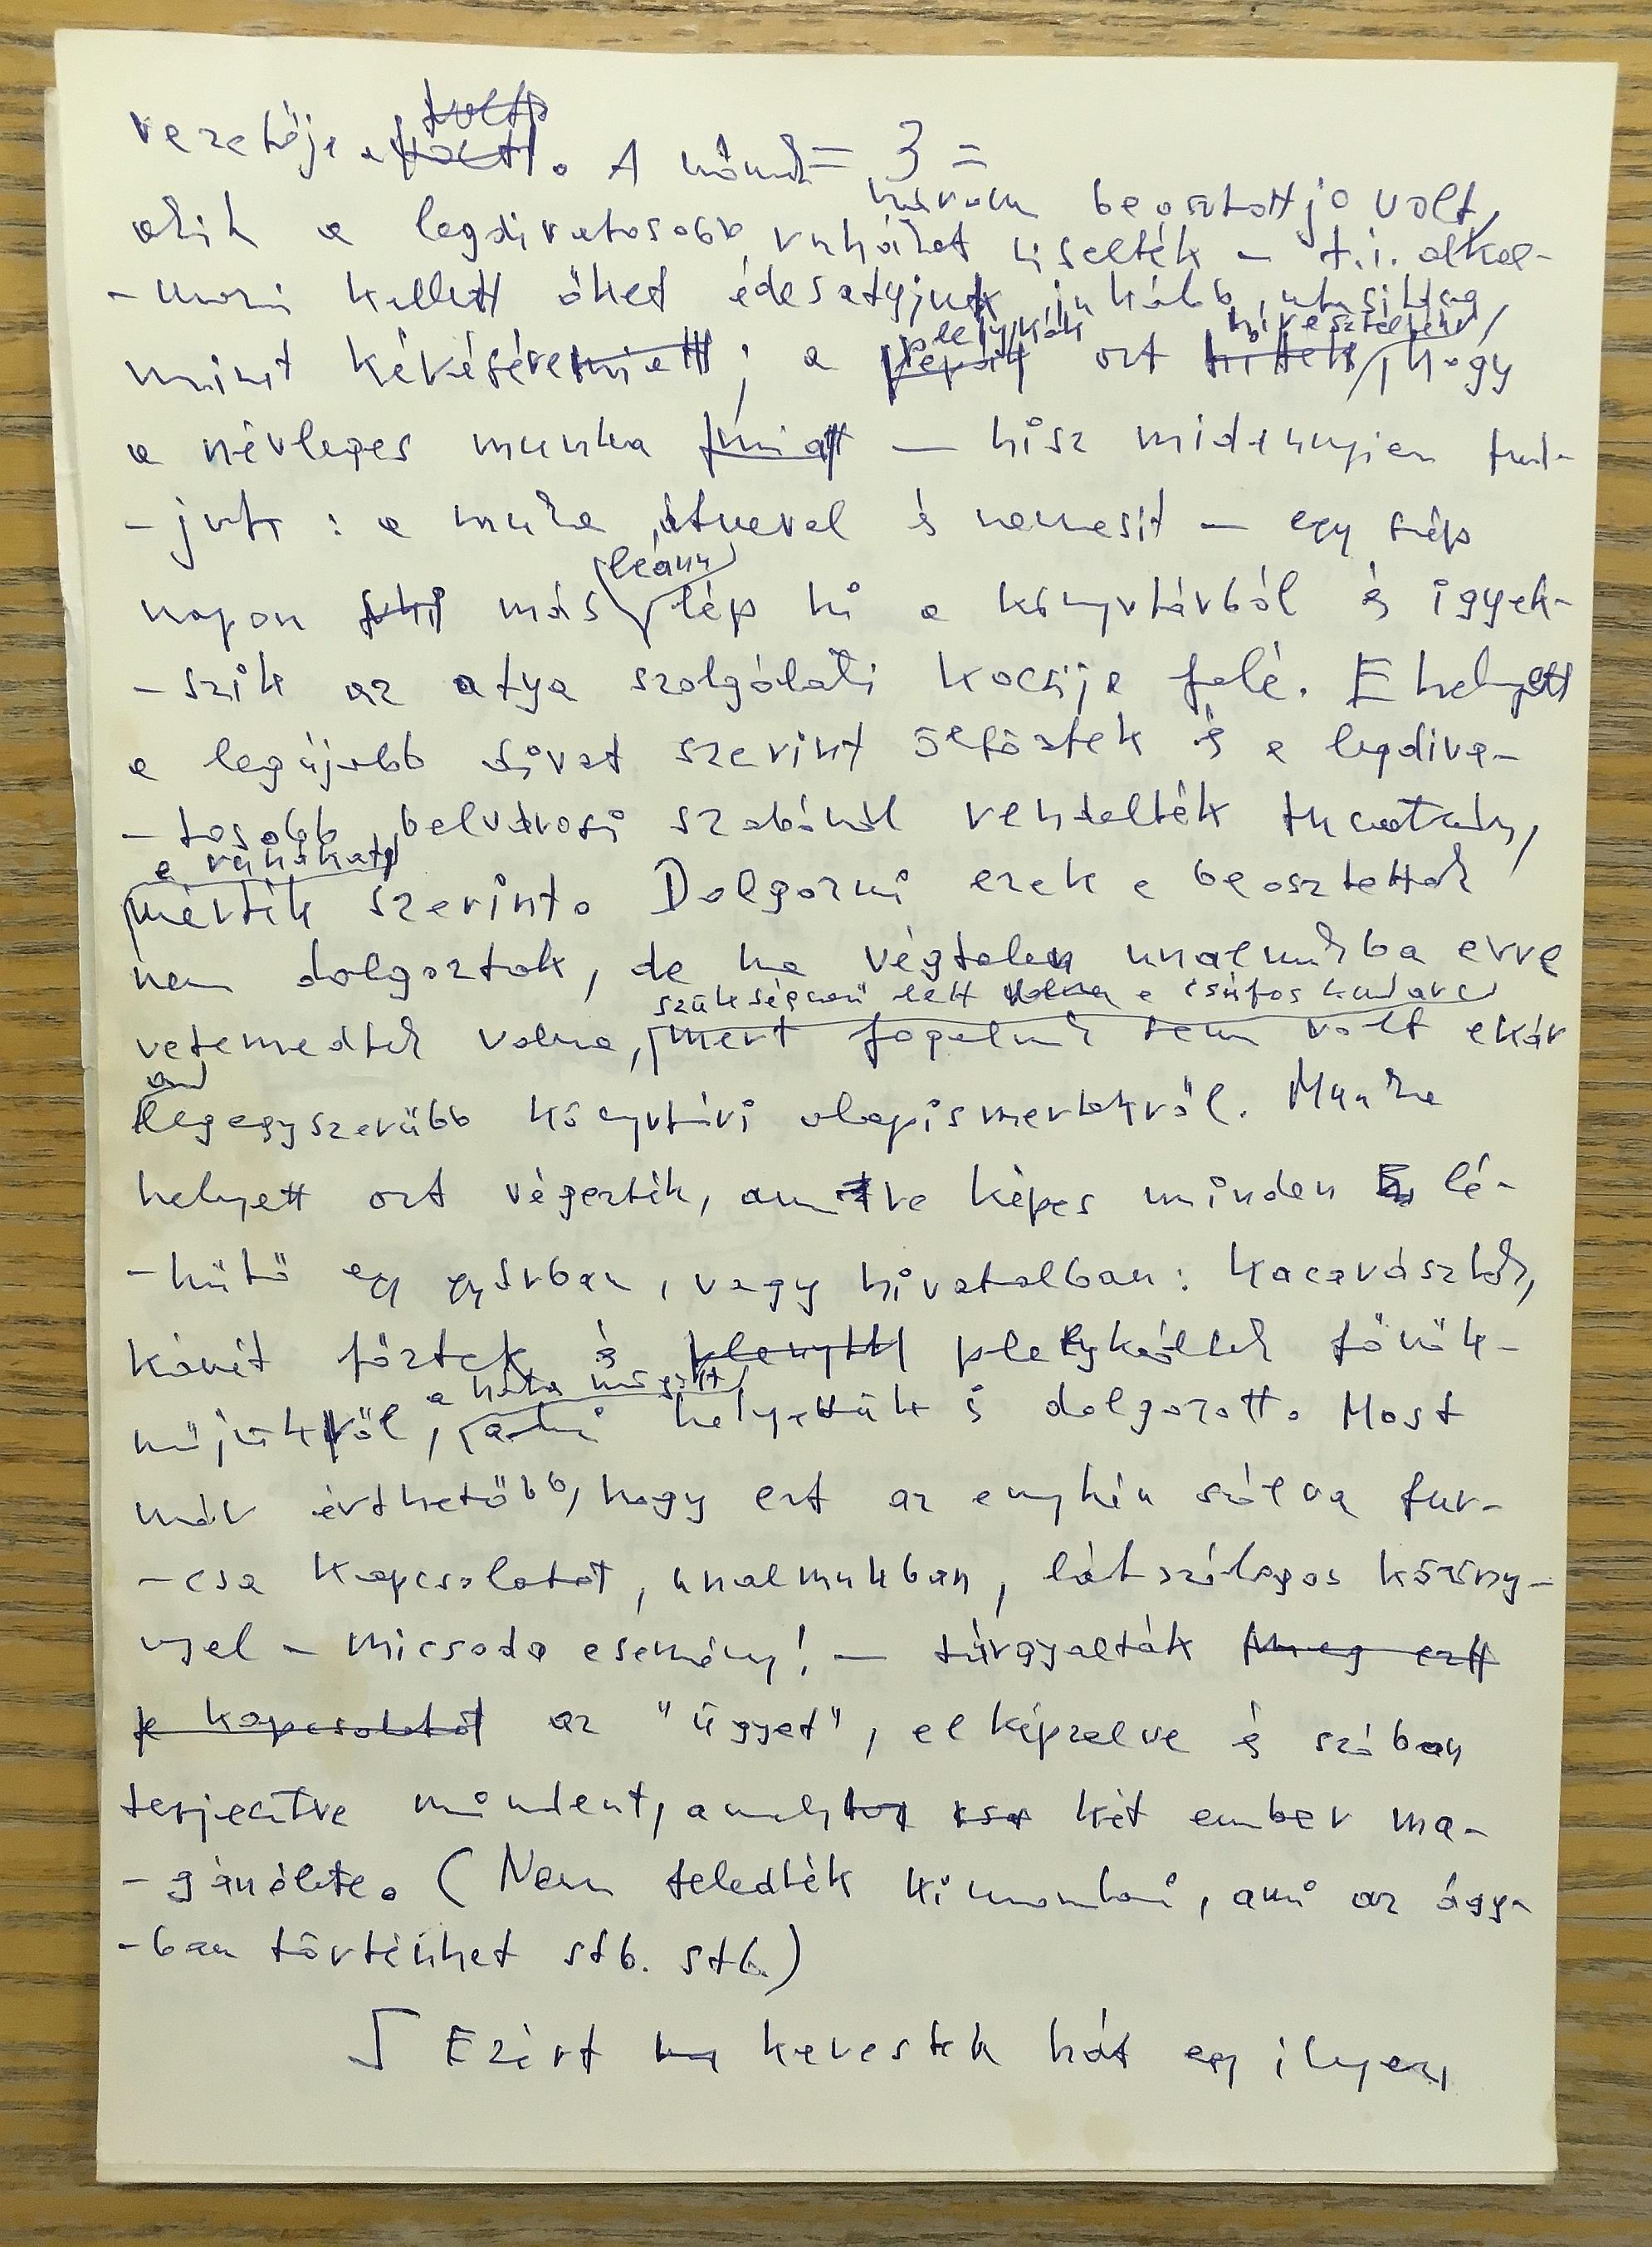 = 3 =
vezetője volt. A nőnek három beosztottja volt,
akik a legdivatosabb ruhákat viselték – t.i. alkal-
-mazni kellett őket édesatyjuk inkább utasítására,
mint kérésére; a pletykák ezt híresztelték, hogy
a névleges munka miatt — hisz midennyien tud-
-juk : a munka átnevel és nemesít — egy szép
napon más leány lép ki a könyvtárból és igyek-
-szik az atya szolgálati kocsija felé. Ehelyett
a legújabb divat szerint öltöztek és a legdiva-
-tosabb belvárosi szabónál rendelték tucatszám,
a ruhákat mérték szerint. Dolgozni ezek a beosztottak
nem dolgoztak, de ha végtelen unalmukba erre
vetemedtek volna, szükségszerű lett volna a csúfos kudarc mert fogalmuk sem volt akár
a legegyszerűbb könyvtári alapismeretekről. Munka
helyett ezt végezték, amire képes minden lé-
-hűtő egy gyárban, vagy hivatalban: kacarásztak,
kávét főztek és pletykáltak főnök-
nőjükről, a háta mögött, aki helyettük is dolgozott. Most
már érthetőbb, hogy ezt az enyhén szólva fur-
-csa kapcsolatot, unalmukban, látszólagos közöny-
nyel – micsoda esemény! — tárgyalták meg ezt
a kapcsolatot az "ügyet", elképzelve és szóban
terjesztve mindent, amely csak két ember ma-
-gánélete. (Nem feledték kimondani, ami az ágy-
-ban történhet stb. stb.)
Ezért kerestek hát egy ilyen,